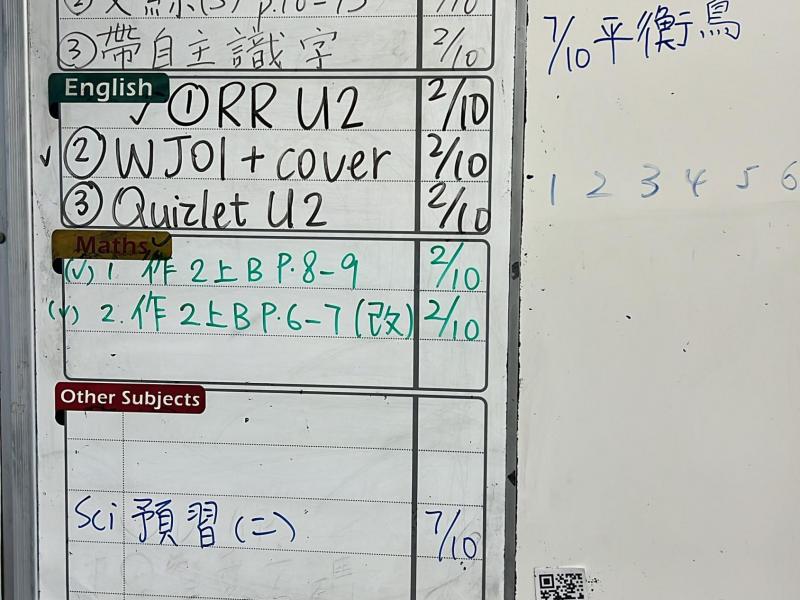 ② 文 p.10-13 1/10
③ 帶自主識字 2/10
English
✓ ① RR U2 2/10
✓ ② WJ01 + cover 2/10
③ Quizlet U2 2/10
Maths ✓
(✓) 1. 作2上B P.8-9 2/10
(✓) 2. 作2上B P.6-7 (改) 2/10
Other Subjects
Sci 預習(二) 7/10
7/10 平衡鳥
1 2 3 4 5 6